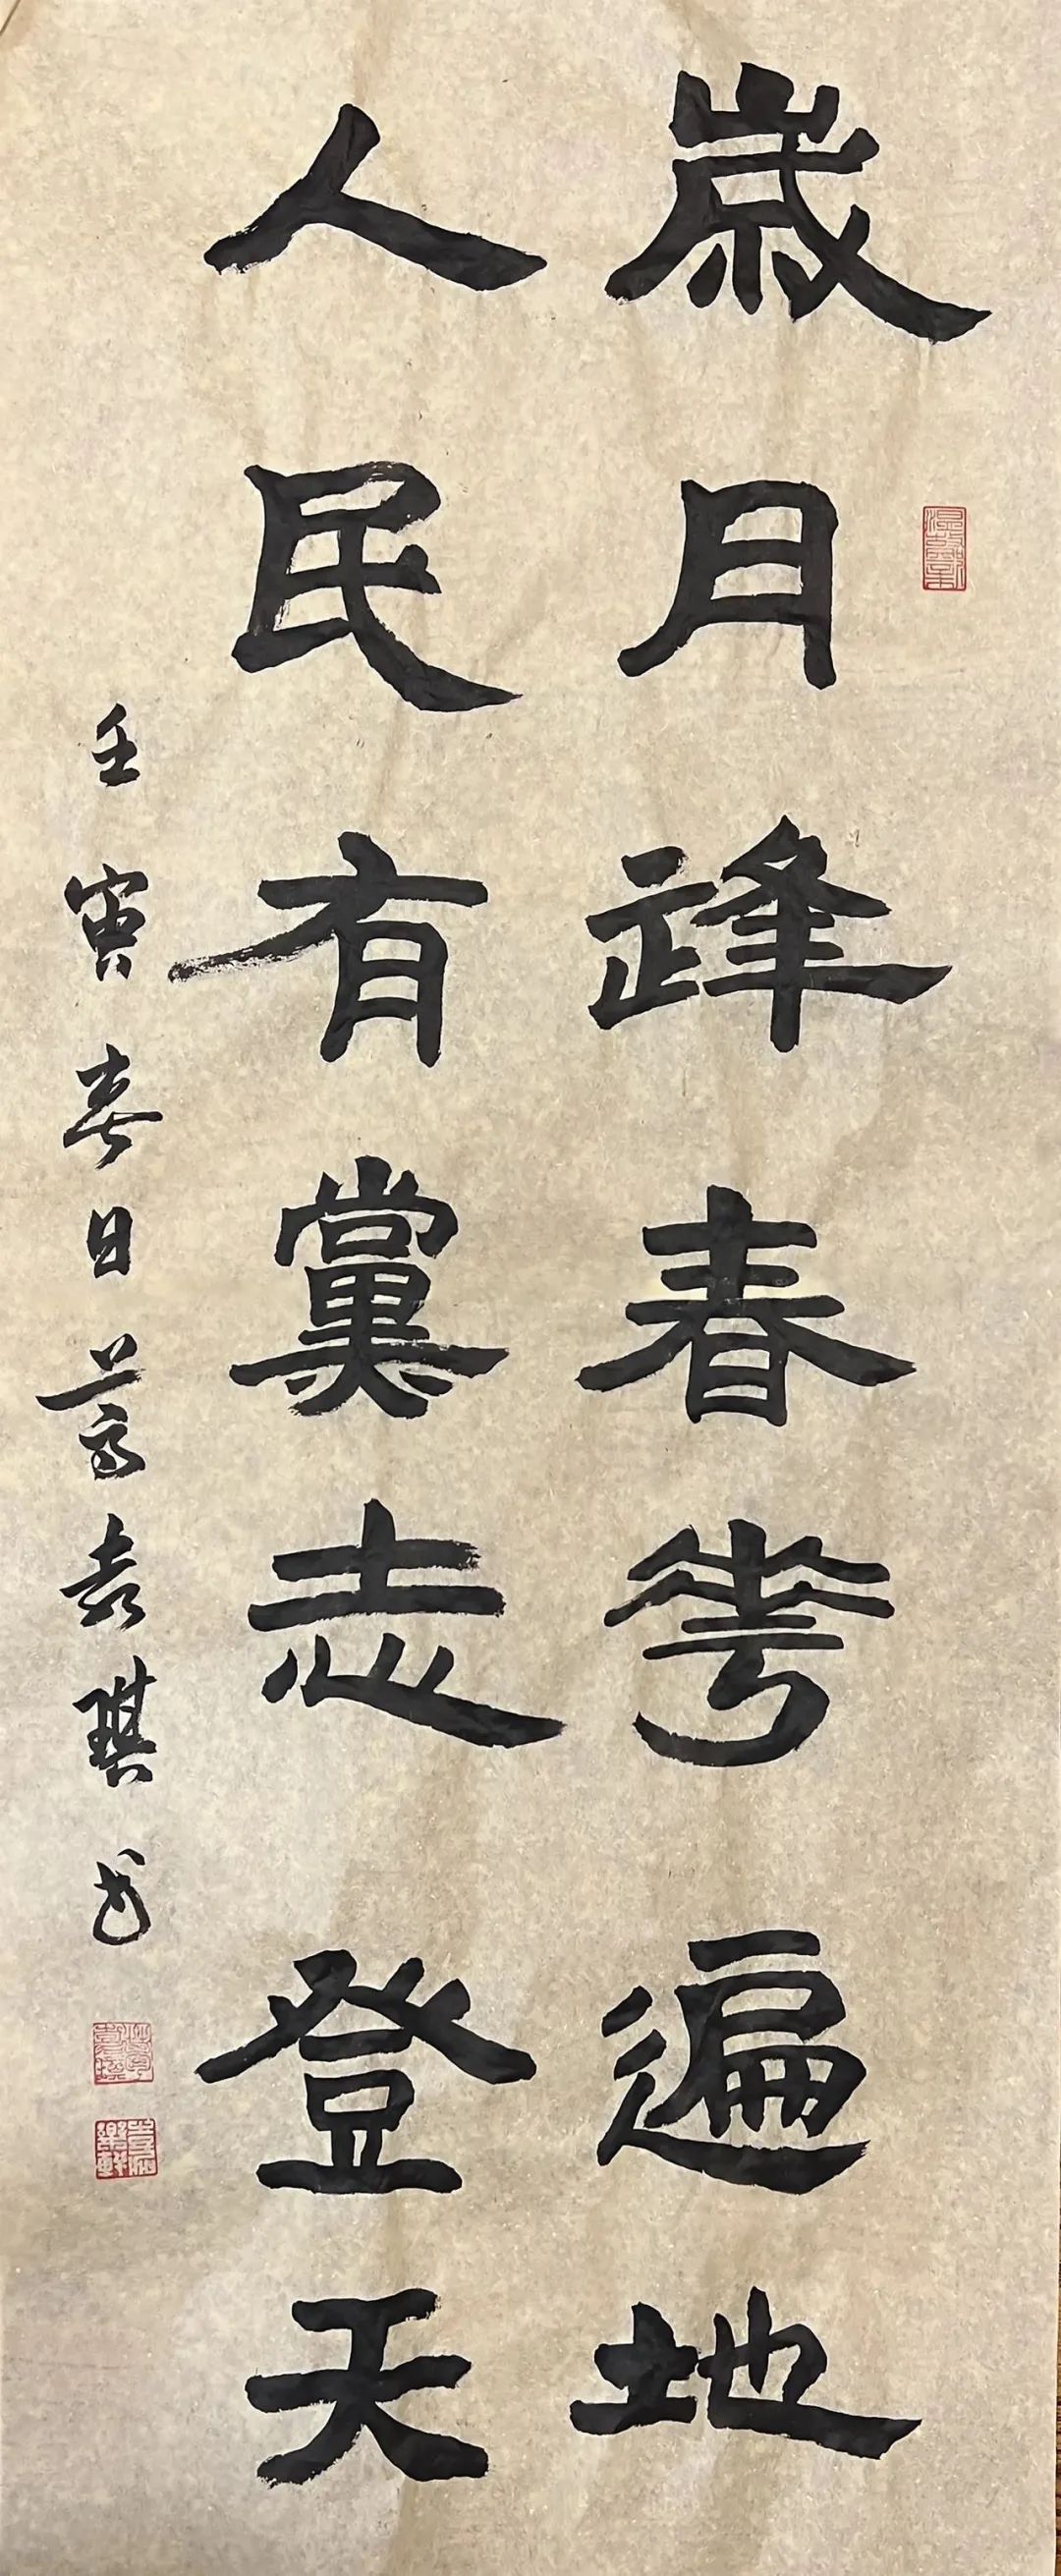 歲月逢春花遍地
人民有黨志登天
壬寅春日 袁琪书